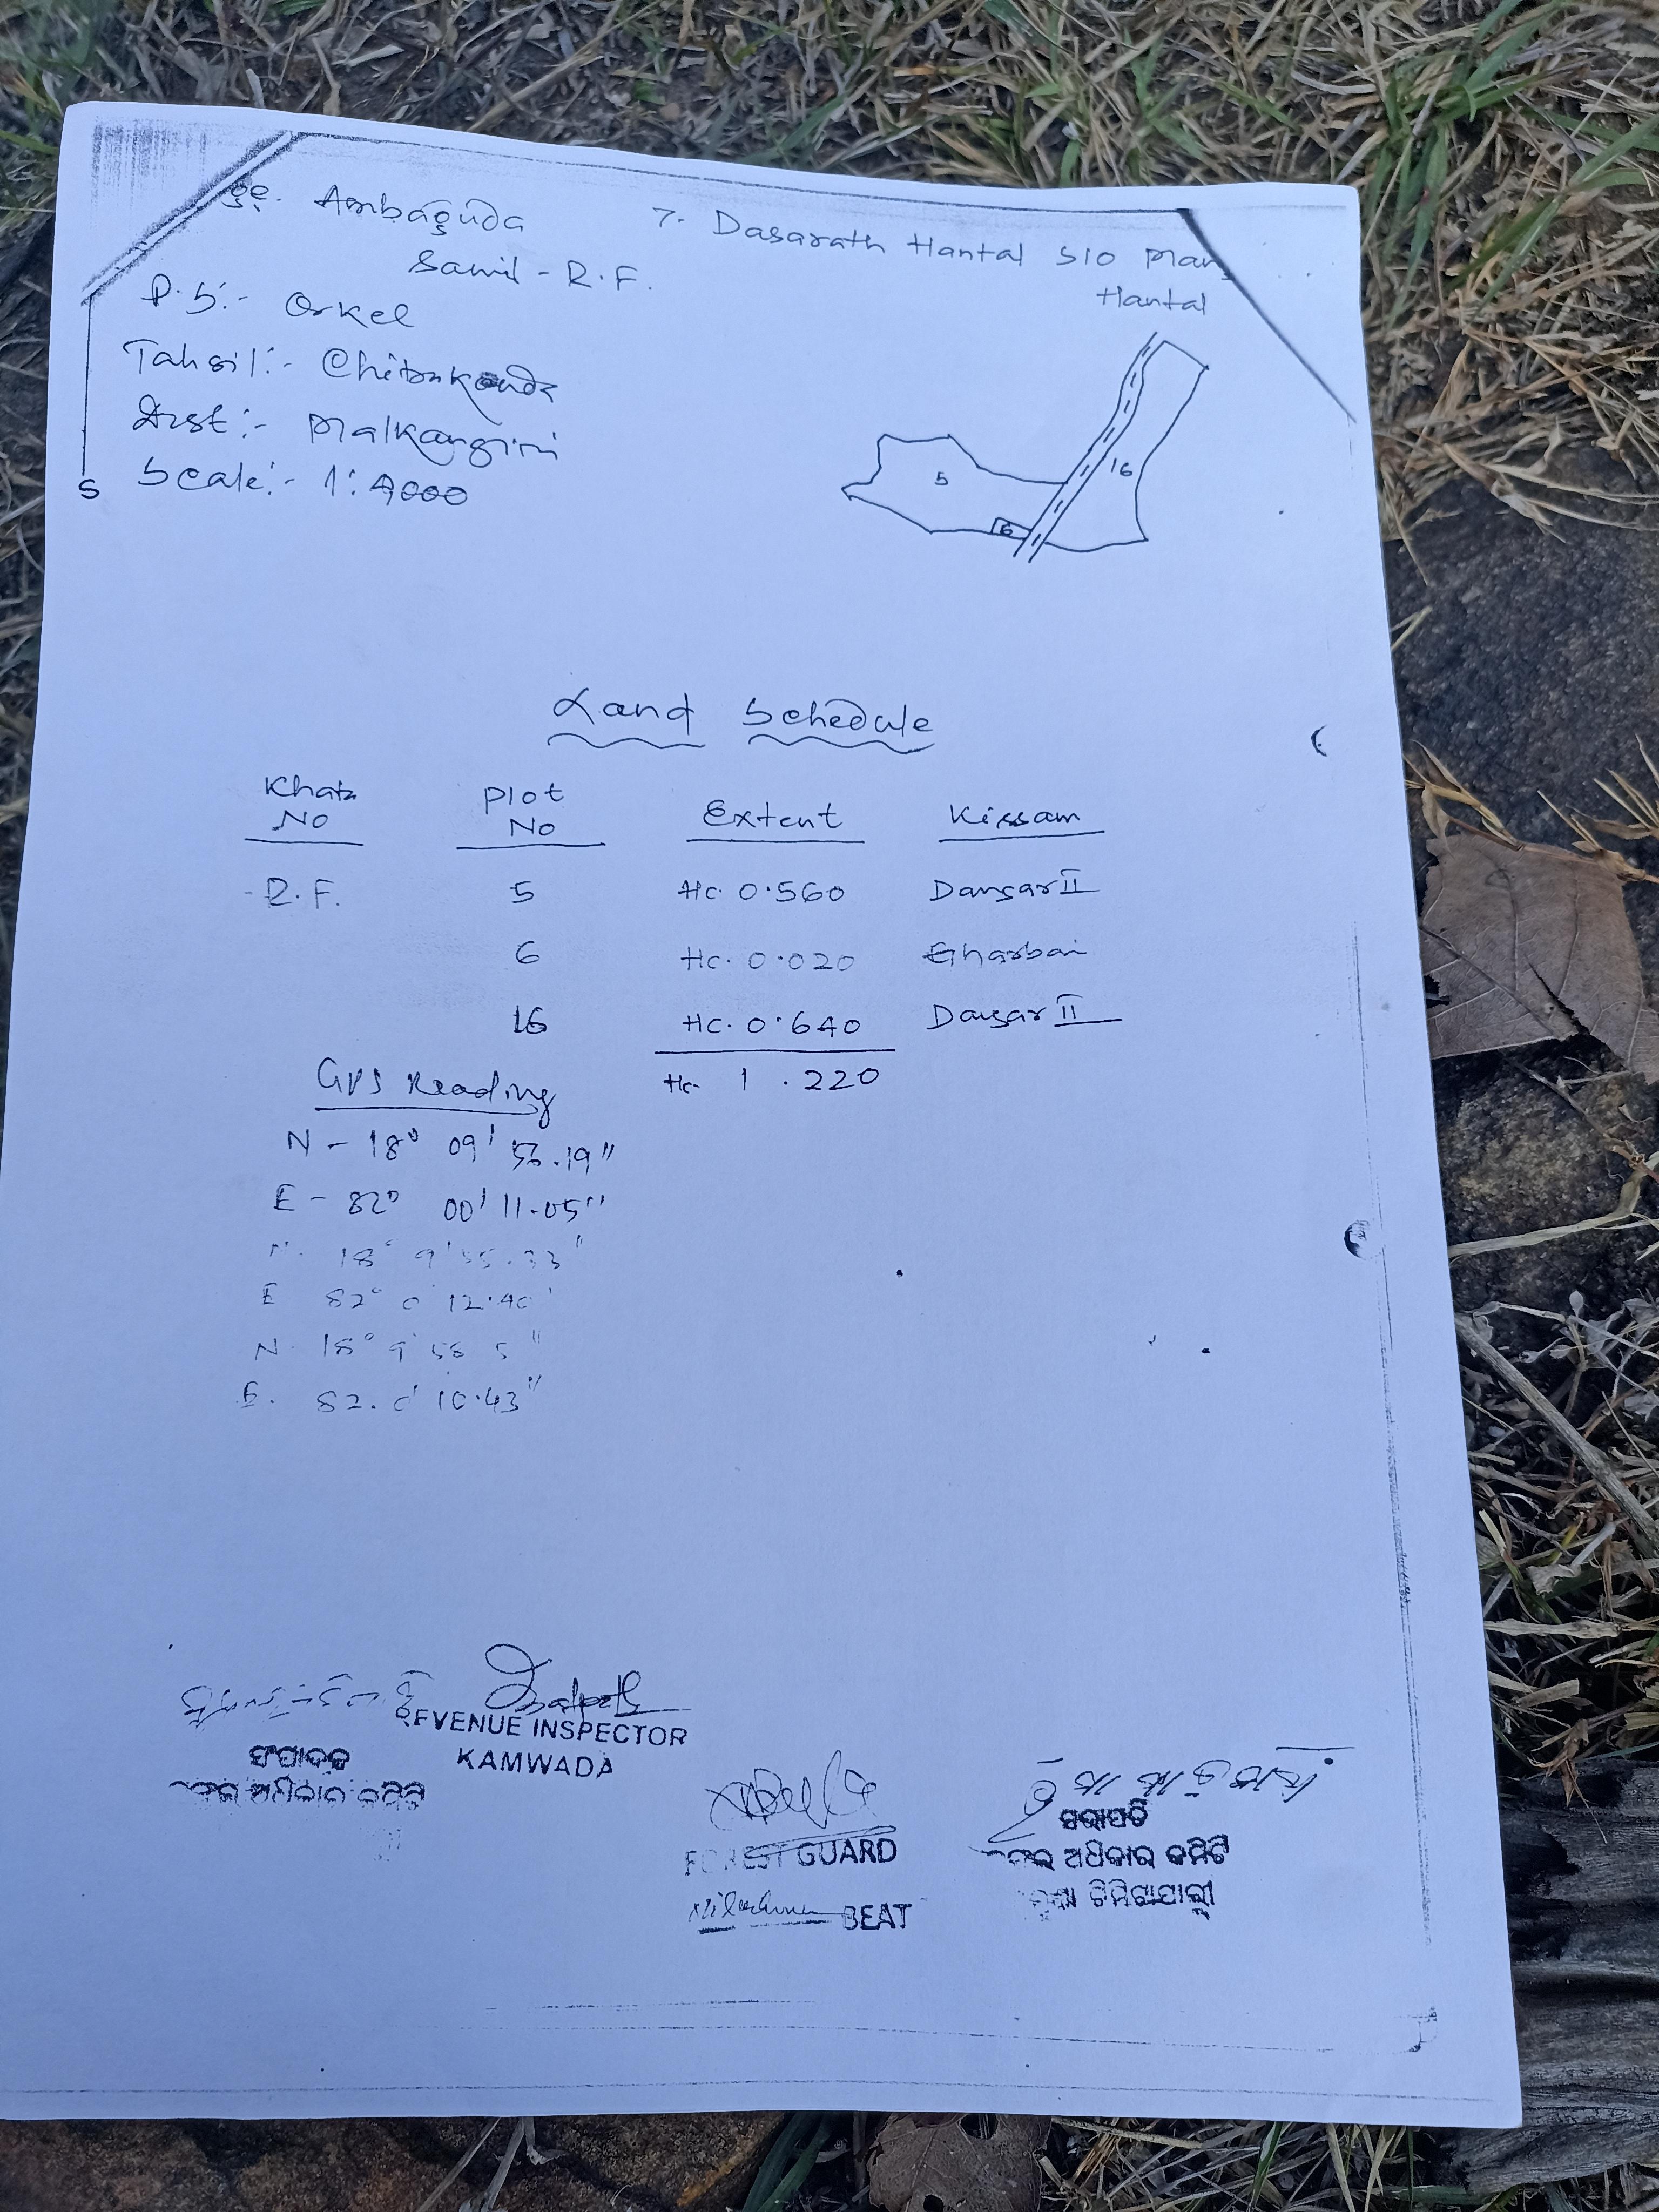 Ambaguda
Samil - R.F.
P.S:- Orkel
Tahsil:- Chitrakonda
Dist:- Malkangiri
Scale:- 1:4000
S
7. Dasarath Hantal S/O
Hantal
5
16
6
Land Schedule
Khata No Plot No Extent Kissam
R.F. 5 Hc. 0.560 Dangar II
6 Hc. 0.020 Gharbari
16 Hc. 0.640 Dangar II
Hc. 1.220
GPS Reading
N - 18° 09' .19"
E - 82° 00' 11.05"
N. 18° 9' 55.33"
E 82° 0' 12.40"
N. 18° 9' 58.5"
E. 82. 0' 10.43"
REVENUE INSPECTOR
KAMWADA
ସଂପାଦକ
ଅଧିକାର କମିଟି
FOREST GUARD
BEAT
ସଭାପତି
ଅଧିକାର କମିଟି